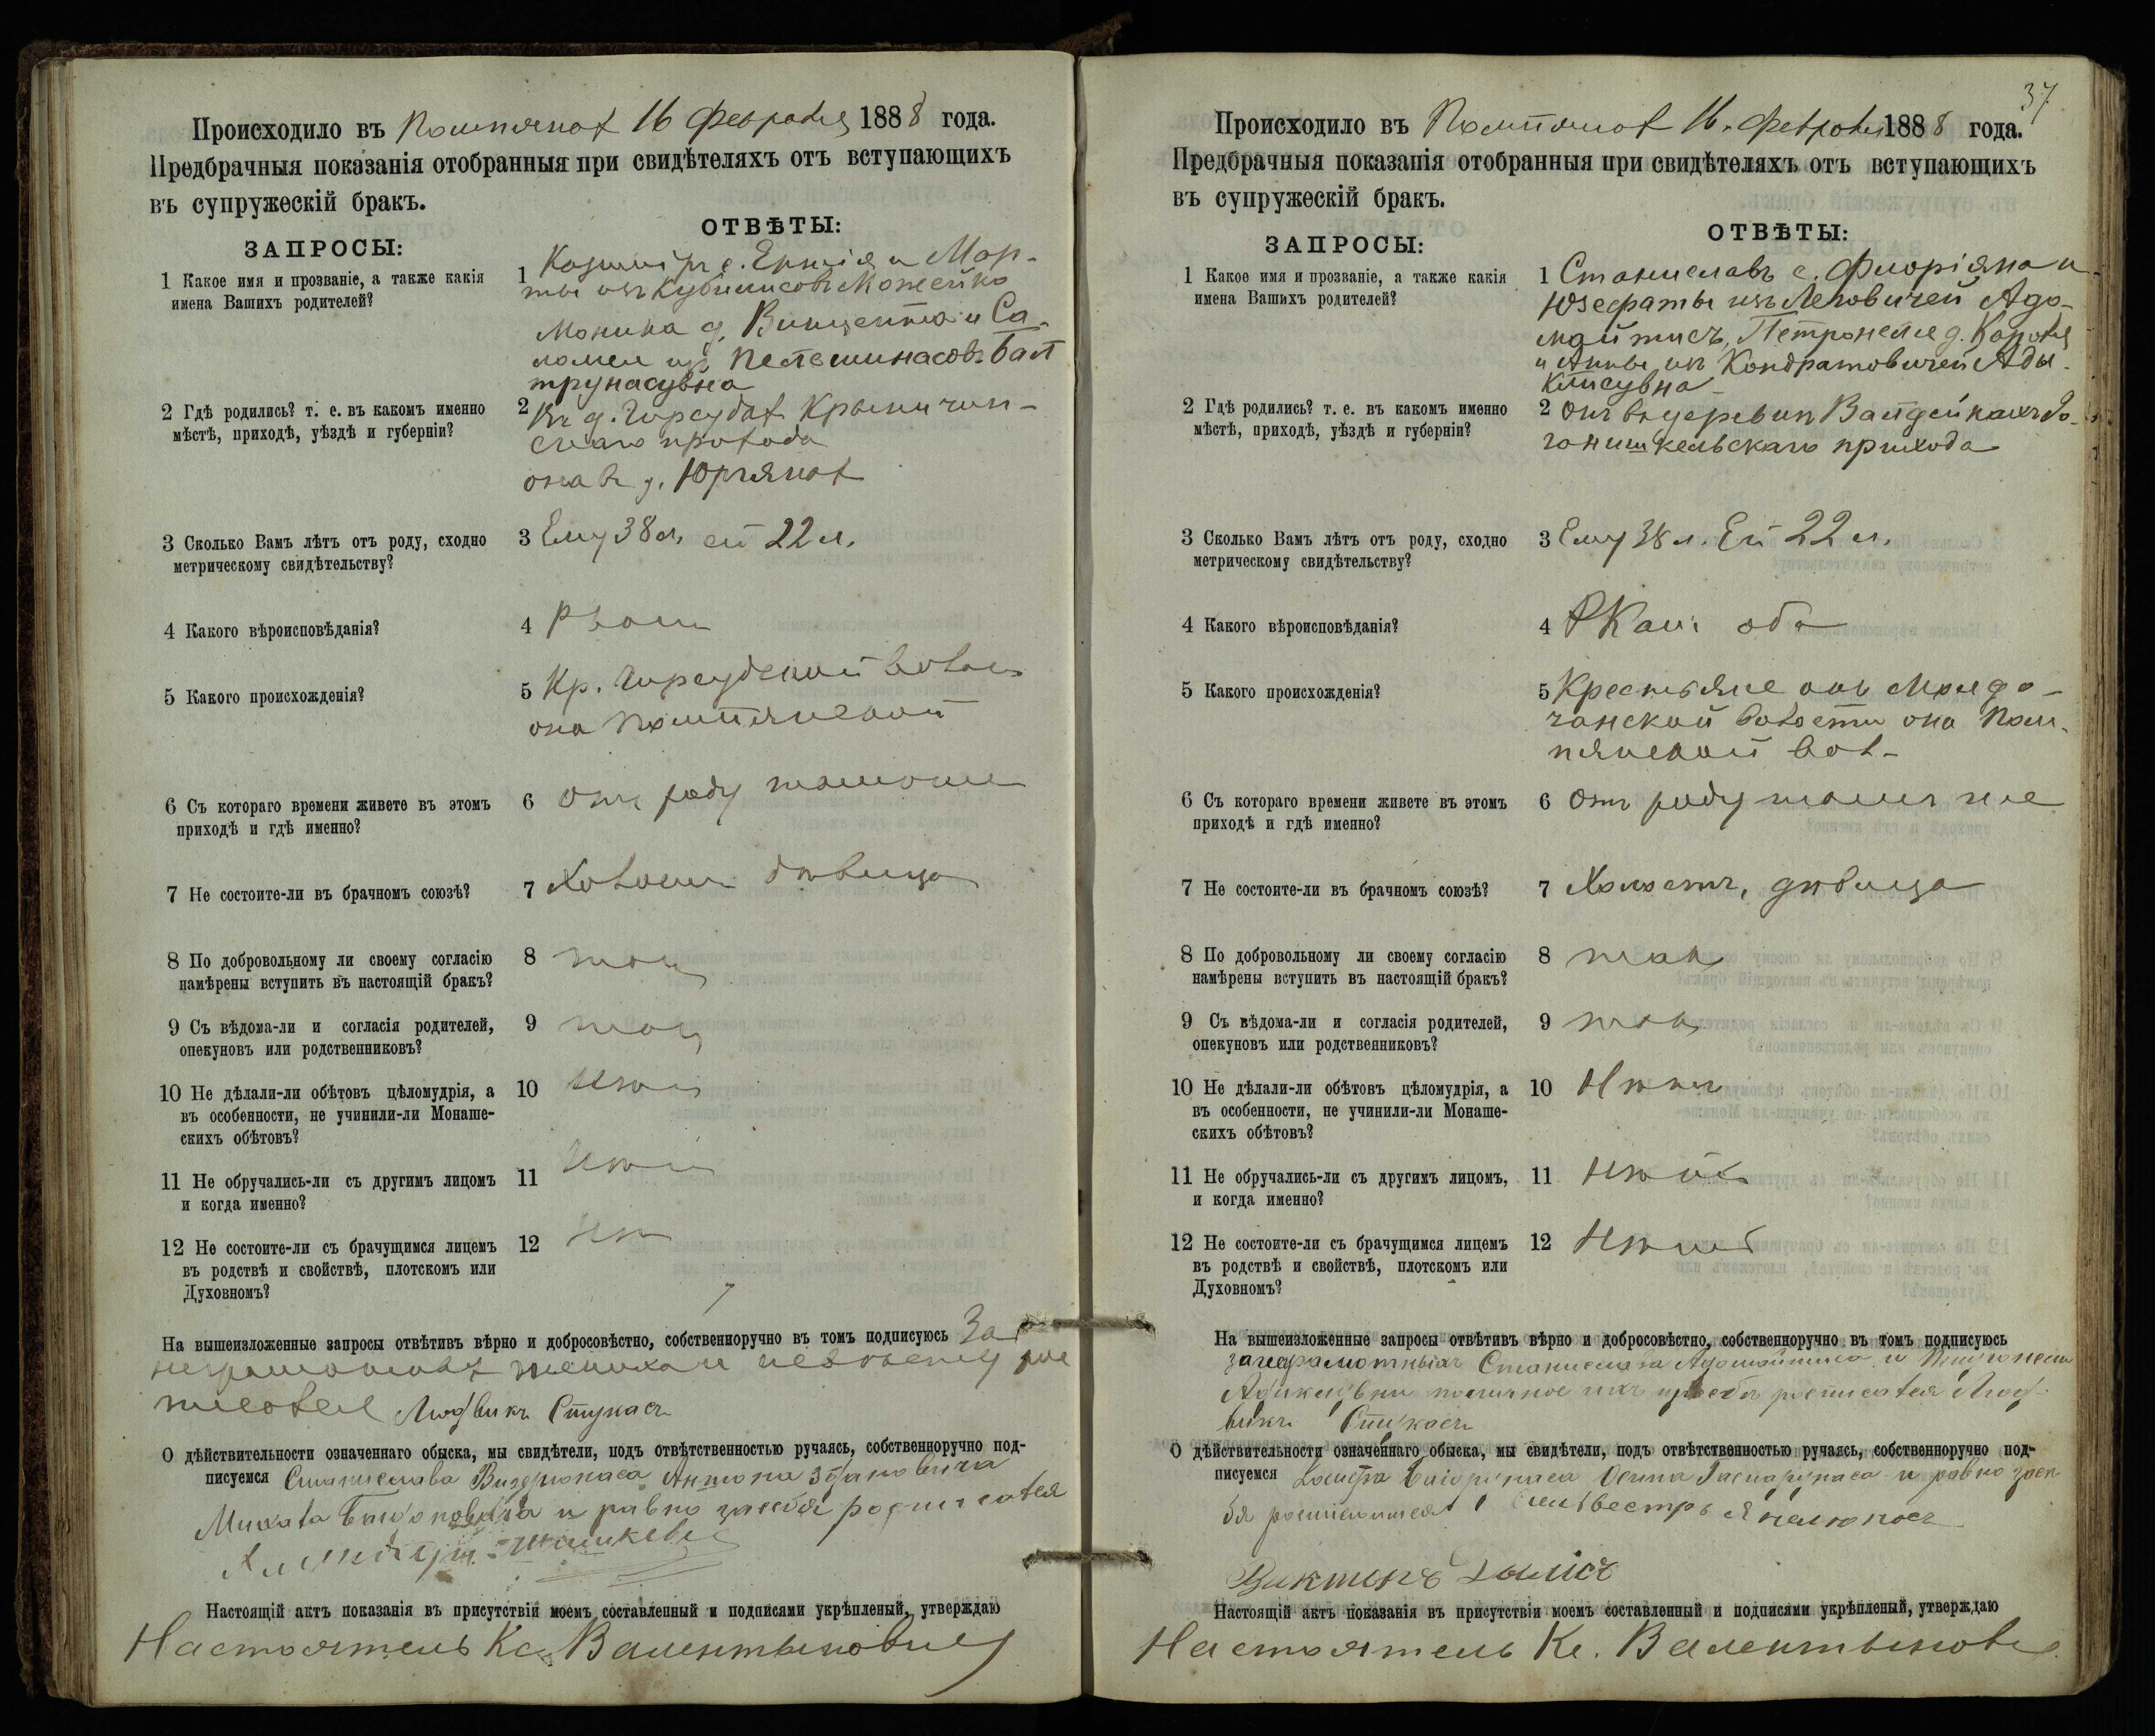 Происходило въ Помпянах 16 Февраля 1888 года.
Предбрачныя показанія отобранныя при свидѣтеляхъ отъ вступающихъ
въ супружескій бракъ.
ЗАПРОСЫ:
ОТВѢТЫ:
1 Какое имя и прозваніе, а также какія
имена Вашихъ родителей?
1 Казиміръ с. и Мар-
ты изъ Можейко
Моника д. Винцента и Са-
ломеи изъ Бал
трунасувна
2 Гдѣ родились? т. е. въ какомъ именно
мѣстѣ, приходѣ, уѣздѣ и губерніи?
2 Въ д. Гирсудах
скаго прихода
она въ д. Юргянах
3 Сколько Вамъ лѣтъ отъ роду, сходно
метрическому свидѣтельству?
3 Ему 38 л. ей 22 л.
4 Какого вѣроисповѣданія?
4
5 Какого происхожденія?
5 Кр. Гирсудской волос
она Помпянской
6 Съ котораго времени живете въ этомъ
приходѣ и гдѣ именно?
6 Отъ роду
7 Не состоите-ли въ брачномъ союзѣ?
7 дѣвица
8 По добровольному ли своему согласію
намѣрены вступить въ настоящій бракъ?
8 так
9 Съ вѣдома-ли и согласія родителей,
опекуновъ или родственниковъ?
9 так
10 Не дѣлали-ли обѣтовъ цѣломудрія, а
въ особенности, не учинили-ли Монаше-
скихъ обѣтовъ?
10
11 Не обручались-ли съ другимъ лицомъ
и когда именно?
11
12 Не состоите-ли съ брачущимся лицемъ
въ родствѣ и свойствѣ, плотскомъ или
Духовномъ?
12
На вышеизложенные запросы отвѣтивъ вѣрно и добросовѣстно, собственноручно въ томъ подписуюсь За
неграмотных жениха и невѣсту рос
Людвикъ Стукасъ
О дѣйствительности означеннаго обыска, мы свидѣтели, подъ отвѣтственностью ручаясь, собственноручно под-
писуемся Станислава Антона
и равно за себя росписался
Настоящій актъ показанія въ присутствіи моемъ составленный и подписями укрѣпленый, утверждаю
Настоятель Кс. Валентынович
37
Происходило въ Помпянах 16. Февраля 1888 года.
Предбрачныя показанія отобранныя при свидѣтеляхъ отъ вступающихъ
въ супружескій бракъ.
ЗАПРОСЫ:
ОТВѢТЫ:
1 Какое имя и прозваніе, а также какія
имена Вашихъ родителей?
1 Станиславъ с. Флоріяна и
Юзефаты изъ Леповичей Адо-
майтисъ, Петронеле д. Кароля
и Анны из Кондратовичей Ады-
клисувна
2 Гдѣ родились? т. е. въ какомъ именно
мѣстѣ, приходѣ, уѣздѣ и губерніи?
2 Онъ въ деревни Вайдейках Іо-
ганишкельскаго прихода
3 Сколько Вамъ лѣтъ отъ роду, сходно
метрическому свидѣтельству?
3 Ему 38 л. Ей 22 л.
4 Какого вѣроисповѣданія?
4 РКат. оба
5 Какого происхожденія?
5 Крестьяне онъ
ганской волости она Пом-
пянской вол-
6 Съ котораго времени живете въ этомъ
приходѣ и гдѣ именно?
6 Отъ роду тамъ же
7 Не состоите-ли въ брачномъ союзѣ?
7 Холостъ, дѣвица
8 По добровольному ли своему согласію
намѣрены вступить въ настоящій бракъ?
8 так
9 Съ вѣдома-ли и согласія родителей,
опекуновъ или родственниковъ?
9 так
10 Не дѣлали-ли обѣтовъ цѣломудрія, а
въ особенности, не учинили-ли Монаше-
скихъ обѣтовъ?
10 Нѣтъ
11 Не обручались-ли съ другимъ лицомъ,
и когда именно?
11 нѣтъ
12 Не состоите-ли съ брачущимся лицемъ
въ родствѣ и свойствѣ, плотскомъ или
Духовномъ?
12 Нѣтъ
На вышеизложенные запросы отвѣтивъ вѣрно и добросовѣстно, собственноручно въ томъ подписуюсь
за неграмотныхъ Станислава Адомайтиса и Петронели
по личное ихъ просьбѣ росписался Люд-
викъ Стукасъ
О дѣйствительности означеннаго обыска, мы свидѣтели, подъ отвѣтственностью ручаясь, собственноручно под-
писуемся Осипа и равно за се-
бя росписался Сильвестръ
Викторъ
Настоящій актъ показанія въ присутствіи моемъ составленный и подписями укрѣпленый, утверждаю
Настоятель Кс. Валентынович